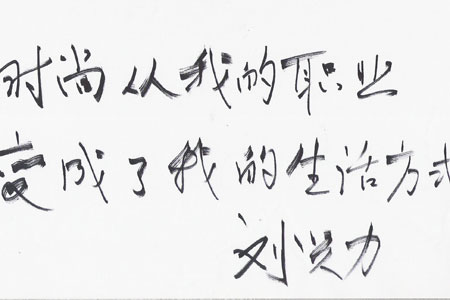 时尚从我的职业
变成了我的生活方式
刘兴力